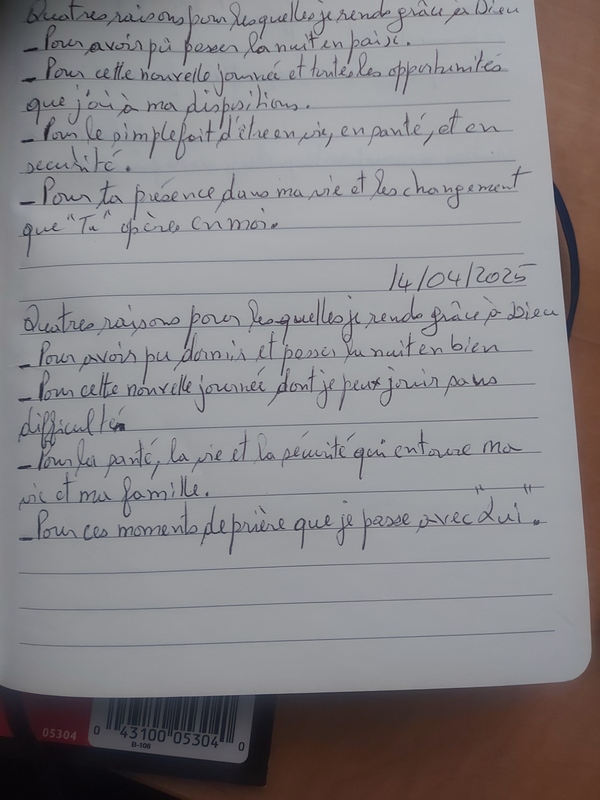 Quatres raisons pour lesquelles je rends grâce à Dieu
- Pour avoir pu passer la nuit en paix.
- Pour cette nouvelle journée et toutes les opportunités
que j'ai à ma dispositions.
- Pour le simple fait d'être en vie, en santé, et en
sécurité.
- Pour ta présence dans ma vie et les changement
que "Tu" opères en moi.
14/04/2025
Quatres raisons pour lesquelles je rends grâce à Dieu
- Pour avoir pu dormir et passer la nuit en bien
- Pour cette nouvelle journée dont je peux jouir sans
difficulté
- Pour la santé, la vie et la sécurité qui entoure ma
vie et ma famille.
- Pour ces moments de prière que je passe avec "Lui".
05304
0 43100 05304 0
B-108